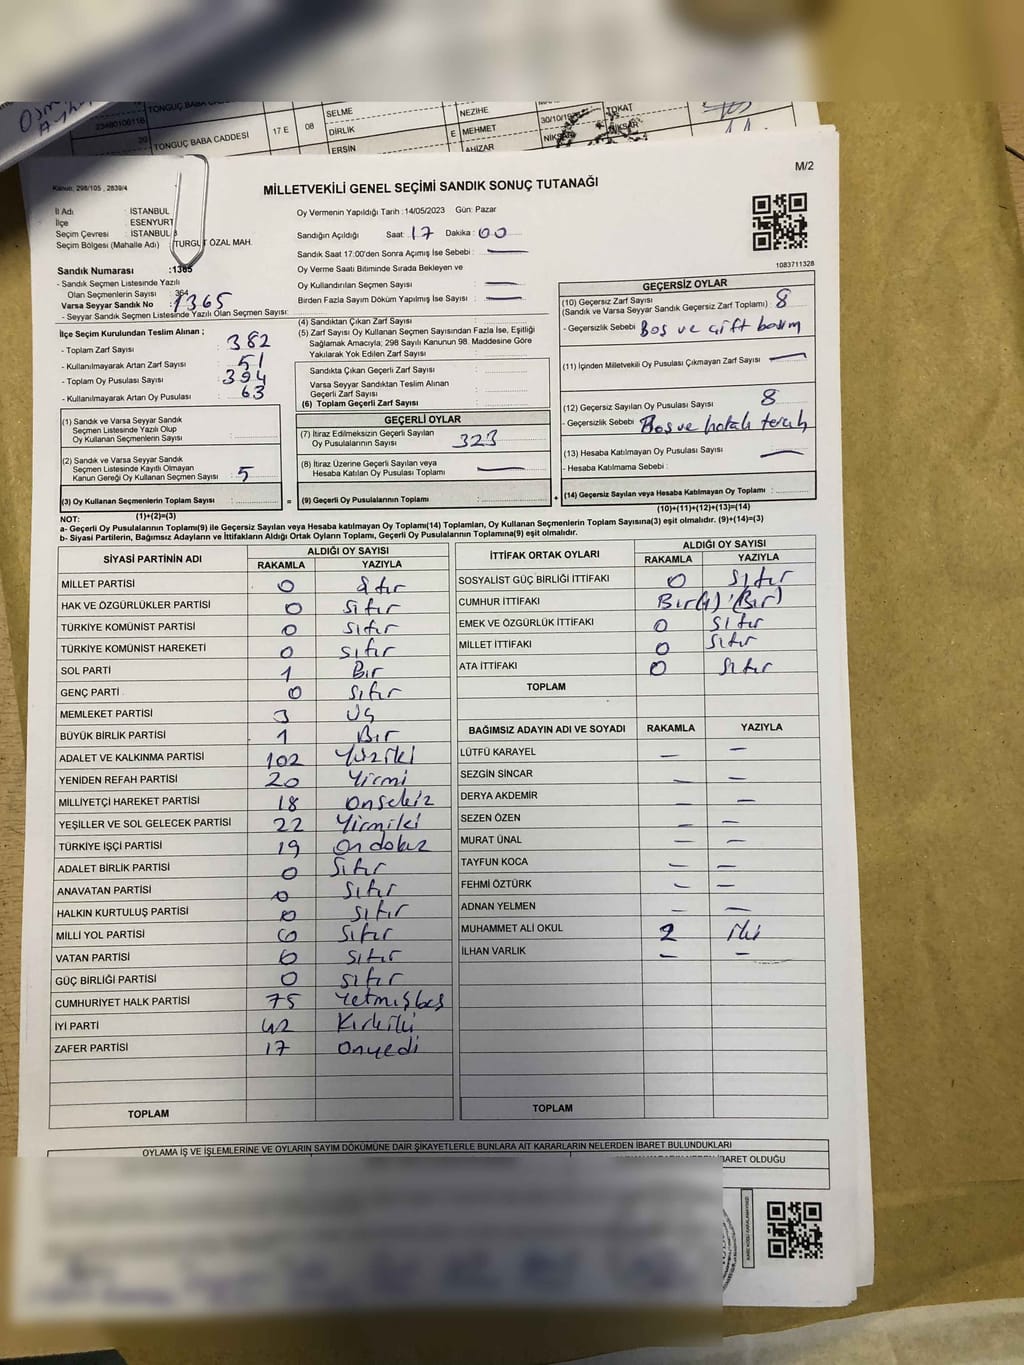 TONGUÇ BABA CADDESİ
SELME
NEZİHE
TOKAT
23480106116
20
TONGUÇ BABA CADDESİ
17 E
08
DİRLİK
E
MEHMET
30/10/
NİKSAR
ERSİN
AHİZAR
NİKSAR
M/2
Kanun: 298/105 , 2839/4
MİLLETVEKİLİ GENEL SEÇİMİ SANDIK SONUÇ TUTANAĞI
İl Adı : İSTANBUL
İlçe : ESENYURT
Seçim Çevresi : İSTANBUL 3
Seçim Bölgesi (Mahalle Adı) : TURGUT ÖZAL MAH.
Oy Vermenin Yapıldığı Tarih :14/05/2023 Gün: Pazar
Sandığın Açıldığı Saat: 17 Dakika: 00
Sandık Saat 17:00'den Sonra Açılmış İse Sebebi : —
Oy Verme Saati Bitiminde Sırada Bekleyen ve
Oy Kullandırılan Seçmen Sayısı : —
Birden Fazla Sayım Döküm Yapılmış İse Sayısı : —
1083711328
Sandık Numarası :1365
- Sandık Seçmen Listesinde Yazılı
Olan Seçmenlerin Sayısı : 364
Varsa Seyyar Sandık No : 1365
- Seyyar Sandık Seçmen Listesinde Yazılı Olan Seçmen Sayısı:
İlçe Seçim Kurulundan Teslim Alınan ;
- Toplam Zarf Sayısı : 382
- Kullanılmayarak Artan Zarf Sayısı : 51
- Toplam Oy Pusulası Sayısı : 394
- Kullanılmayarak Artan Oy Pusulası : 63
(1) Sandık ve Varsa Seyyar Sandık
Seçmen Listesinde Yazılı Olup
Oy Kullanan Seçmenlerin Sayısı :
(2) Sandık ve Varsa Seyyar Sandık
Seçmen Listesinde Kayıtlı Olmayan
Kanun Gereği Oy Kullanan Seçmen Sayısı : 5
(3) Oy Kullanan Seçmenlerin Toplam Sayısı :
(1)+(2)=(3)
(4) Sandıktan Çıkan Zarf Sayısı :
(5) Zarf Sayısı Oy Kullanan Seçmen Sayısından Fazla İse, Eşitliği
Sağlamak Amacıyla; 298 Sayılı Kanunun 98. Maddesine Göre
Yakılarak Yok Edilen Zarf Sayısı :
Sandıkta Çıkan Geçerli Zarf Sayısı :
Varsa Seyyar Sandıktan Teslim Alınan
Geçerli Zarf Sayısı :
(6) Toplam Geçerli Zarf Sayısı :
GEÇERLİ OYLAR
(7) İtiraz Edilmeksizin Geçerli Sayılan
Oy Pusulalarının Sayısı : 323
(8) İtiraz Üzerine Geçerli Sayılan veya
Hesaba Katılan Oy Pusulası Toplamı : —
= (9) Geçerli Oy Pusulalarının Toplamı :
GEÇERSİZ OYLAR
(10) Geçersiz Zarf Sayısı
(Sandık ve Varsa Seyyar Sandık Geçersiz Zarf Toplamı) : 8
- Geçersizlik Sebebi : Boş ve çift basım
(11) İçinden Milletvekili Oy Pusulası Çıkmayan Zarf Sayısı : —
(12) Geçersiz Sayılan Oy Pusulası Sayısı : 8
- Geçersizlik Sebebi : Boş ve hatalı tercih
(13) Hesaba Katılmayan Oy Pusulası Sayısı : —
- Hesaba Katılmama Sebebi :
+ (14) Geçersiz Sayılan veya Hesaba Katılmayan Oy Toplamı :
(10)+(11)+(12)+(13)=(14)
NOT:
a- Geçerli Oy Pusulalarının Toplamı(9) ile Geçersiz Sayılan veya Hesaba katılmayan Oy Toplamı(14) Toplamları, Oy Kullanan Seçmenlerin Toplam Sayısına(3) eşit olmalıdır. (9)+(14)=(3)
b- Siyasi Partilerin, Bağımsız Adayların ve İttifakların Aldığı Ortak Oyların Toplamı, Geçerli Oy Pusulalarının Toplamına(9) eşit olmalıdır.
SİYASİ PARTİNİN ADI
ALDIĞI OY SAYISI
RAKAMLA YAZIYLA
MİLLET PARTİSİ 0 Sıfır
HAK VE ÖZGÜRLÜKLER PARTİSİ 0 Sıfır
TÜRKİYE KOMÜNİST PARTİSİ 0 Sıfır
TÜRKİYE KOMÜNİST HAREKETİ 0 Sıfır
SOL PARTİ 1 Bir
GENÇ PARTİ 0 Sıfır
MEMLEKET PARTİSİ 3 Üç
BÜYÜK BİRLİK PARTİSİ 1 Bir
ADALET VE KALKINMA PARTİSİ 102 Yüziki
YENİDEN REFAH PARTİSİ 20 Yirmi
MİLLİYETÇİ HAREKET PARTİSİ 18 Onsekiz
YEŞİLLER VE SOL GELECEK PARTİSİ 22 Yirmiki
TÜRKİYE İŞÇİ PARTİSİ 19 Ondokuz
ADALET BİRLİK PARTİSİ 0 Sıfır
ANAVATAN PARTİSİ 0 Sıfır
HALKIN KURTULUŞ PARTİSİ 0 Sıfır
MİLLİ YOL PARTİSİ 0 Sıfır
VATAN PARTİSİ 0 Sıfır
GÜÇ BİRLİĞİ PARTİSİ 0 Sıfır
CUMHURİYET HALK PARTİSİ 75 Yetmişbeş
İYİ PARTİ 42 Kırkiki
ZAFER PARTİSİ 17 Onyedi
TOPLAM
İTTİFAK ORTAK OYLARI
ALDIĞI OY SAYISI
RAKAMLA YAZIYLA
SOSYALİST GÜÇ BİRLİĞİ İTTİFAKI 0 Sıfır
CUMHUR İTTİFAKI Bir(1) (Bir)
EMEK VE ÖZGÜRLÜK İTTİFAKI 0 Sıfır
MİLLET İTTİFAKI 0 Sıfır
ATA İTTİFAKI 0 Sıfır
TOPLAM
BAĞIMSIZ ADAYIN ADI VE SOYADI RAKAMLA YAZIYLA
LÜTFÜ KARAYEL — —
SEZGİN SİNCAR — —
DERYA AKDEMİR — —
SEZEN ÖZEN — —
MURAT ÜNAL — —
TAYFUN KOCA — —
FEHMİ ÖZTÜRK — —
ADNAN YELMEN — —
MUHAMMET ALİ OKUL 2 iki
İLHAN VARLIK — —
TOPLAM
OYLAMA İŞ VE İŞLEMLERİNE VE OYLARIN SAYIM DÖKÜMÜNE DAİR ŞİKAYETLERLE BUNLARA AİT KARARLARIN NELERDEN İBARET BULUNDUKLARI
İBARET OLDUĞU